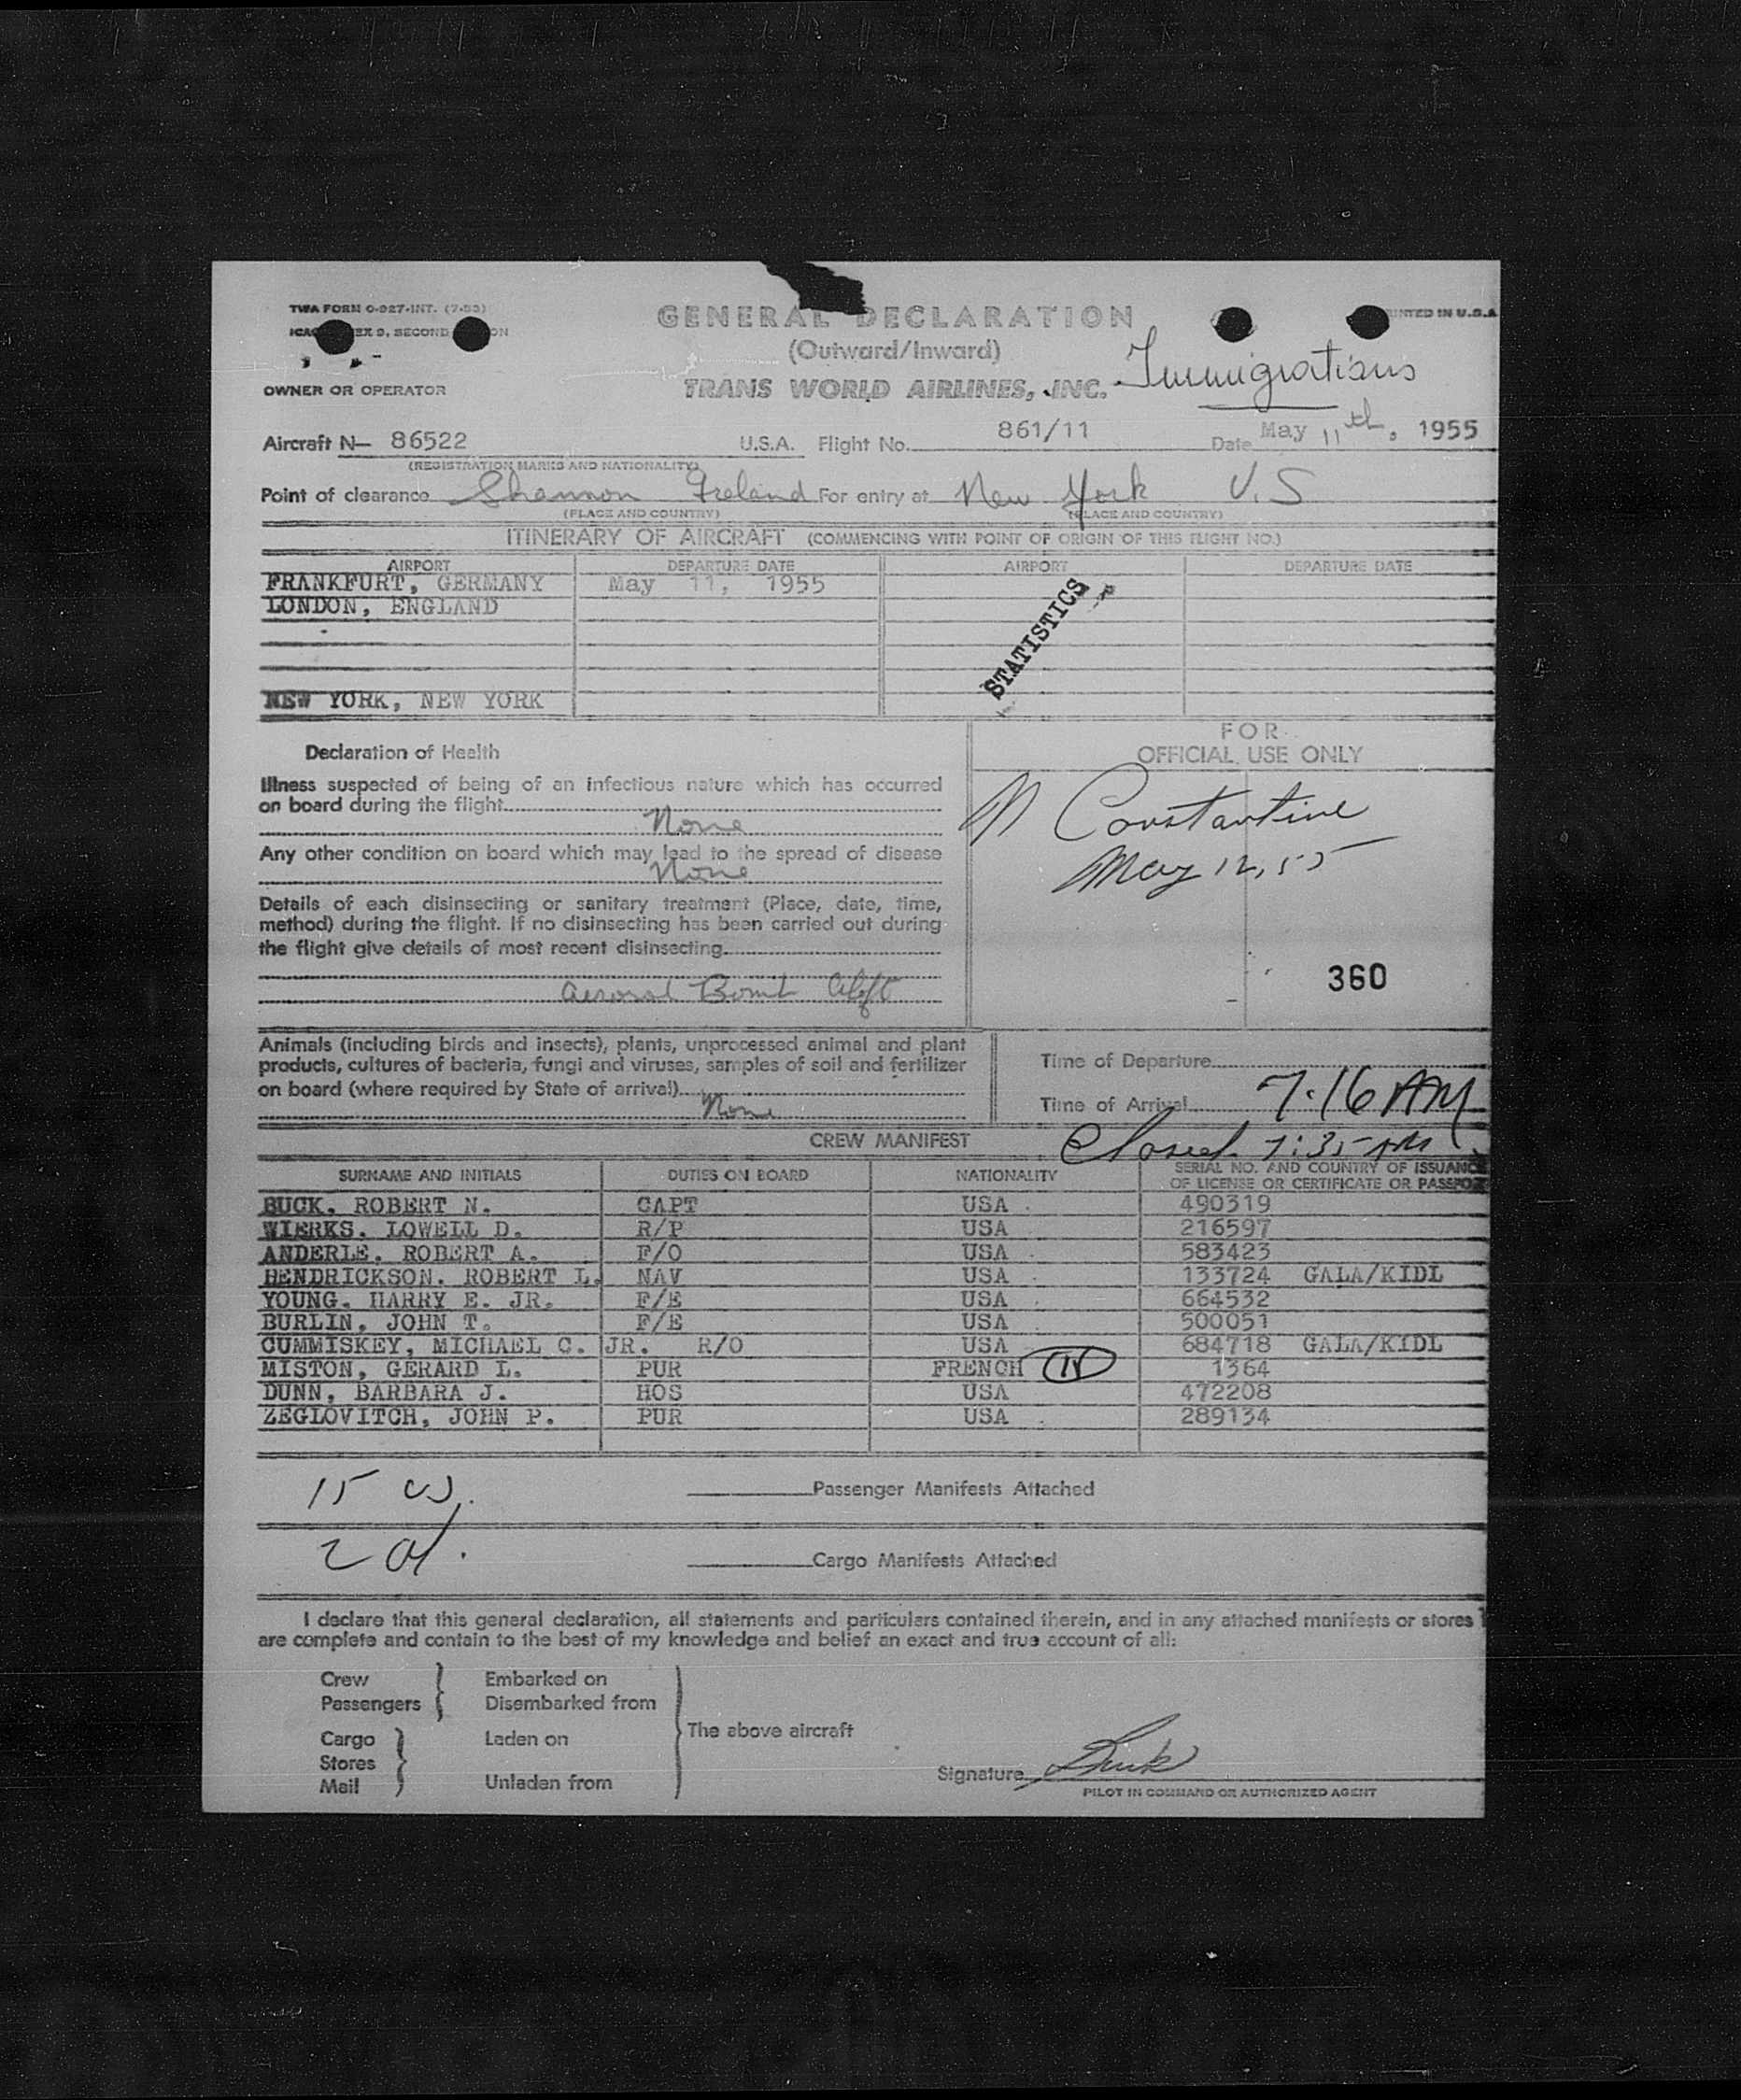 TWA FORM O-927-INT. (7-53)
GENERAL DECLARATION
PRINTED IN U.S.A
SECOND
(Outward/Inward)
Immigrations
OWNER OR OPERATOR
TRANS WORLD AIRLINES, INC.
Aircraft N— 86522 U.S.A. Flight No. 861/11 Date May 11th, 1955
(REGISTRATION MARKS AND NATIONALITY)
Point of clearance Shannon Ireland For entry at New York U.S
(PLACE AND COUNTRY) (PLACE AND COUNTRY)
ITINERARY OF AIRCRAFT (COMMENCING WITH POINT OF ORIGIN OF THIS FLIGHT NO.)
AIRPORT DEPARTURE DATE AIRPORT DEPARTURE DATE
FRANKFURT, GERMANY May 11, 1955
LONDON, ENGLAND
STATISTICS
NEW YORK, NEW YORK
FOR
OFFICIAL USE ONLY
Declaration of Health
Illness suspected of being of an infectious nature which has occurred
on board during the flight
None
Any other condition on board which may lead to the spread of disease
None
Details of each disinsecting or sanitary treatment (Place, date, time,
method) during the flight. If no disinsecting has been carried out during
the flight give details of most recent disinsecting
Aerosol Bomb Aloft
Constantine
May 12, 55
360
Animals (including birds and insects), plants, unprocessed animal and plant
products, cultures of bacteria, fungi and viruses, samples of soil and fertilizer
on board (where required by State of arrival)
None
Time of Departure
Time of Arrival 7:16 AM
Closed 7:35 AM
CREW MANIFEST
SURNAME AND INITIALS DUTIES ON BOARD NATIONALITY SERIAL NO. AND COUNTRY OF ISSUANCE
OF LICENSE OR CERTIFICATE OR PASSPORT
BUCK, ROBERT N. CAPT USA 490319
WIERKS, LOWELL D. R/P USA 216597
ANDERLE, ROBERT A. F/O USA 583423
HENDRICKSON, ROBERT L. NAV USA 133724 GALA/KIDL
YOUNG, HARRY E. JR. F/E USA 664532
BURLIN, JOHN T. F/E USA 500051
CUMMISKEY, MICHAEL C. JR. R/O USA 684718 GALA/KIDL
MISTON, GERARD L. PUR FRENCH 1364
DUNN, BARBARA J. HOS USA 472208
ZEGLOVITCH, JOHN P. PUR USA 289134
15
Passenger Manifests Attached
2
Cargo Manifests Attached
I declare that this general declaration, all statements and particulars contained therein, and in any attached manifests or stores
are complete and contain to the best of my knowledge and belief an exact and true account of all:
Crew
Passengers
Embarked on
Disembarked from
Cargo
Stores
Mail
Laden on
Unladen from
The above aircraft
Signature Buck
PILOT IN COMMAND OR AUTHORIZED AGENT